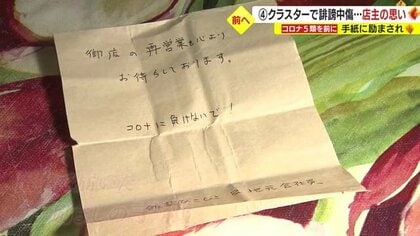 前へ
④クラスターで誹謗中傷…店主の思い
コロナ5類を前に
手紙に励まされ
御店の再営業を心より
お待ちしております。
コロナに負けないで!